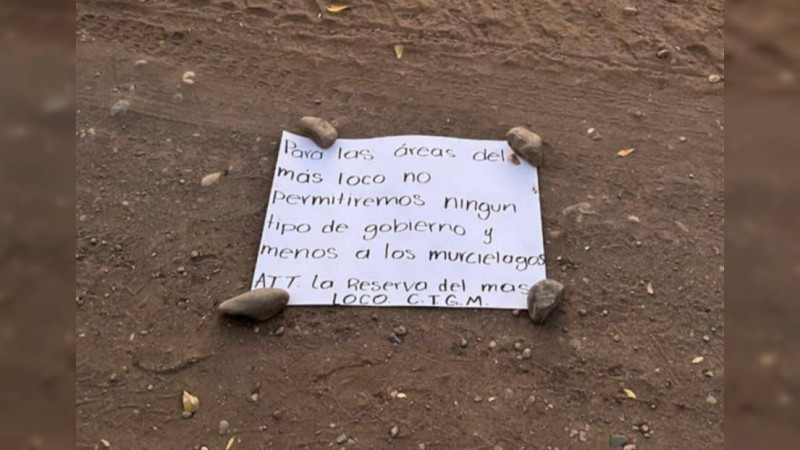 Para las áreas del
más loco no
permitiremos ningun
tipo de gobierno y
menos a los murcielagos
ATT. la Reserva del mas
LOCO C.T.G.M.